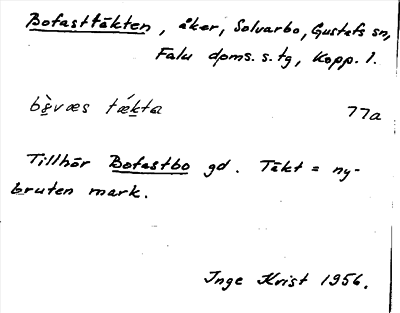 Bofasttäkten, åker, Solvarbo, Gustafs sn,
Falu dpms. s. tg, Kopp. l.
bò̱væs tǽkta 77a
Tillhör Bofastbo gd. Täkt = ny-
bruten mark.
Inge Krist 1956.